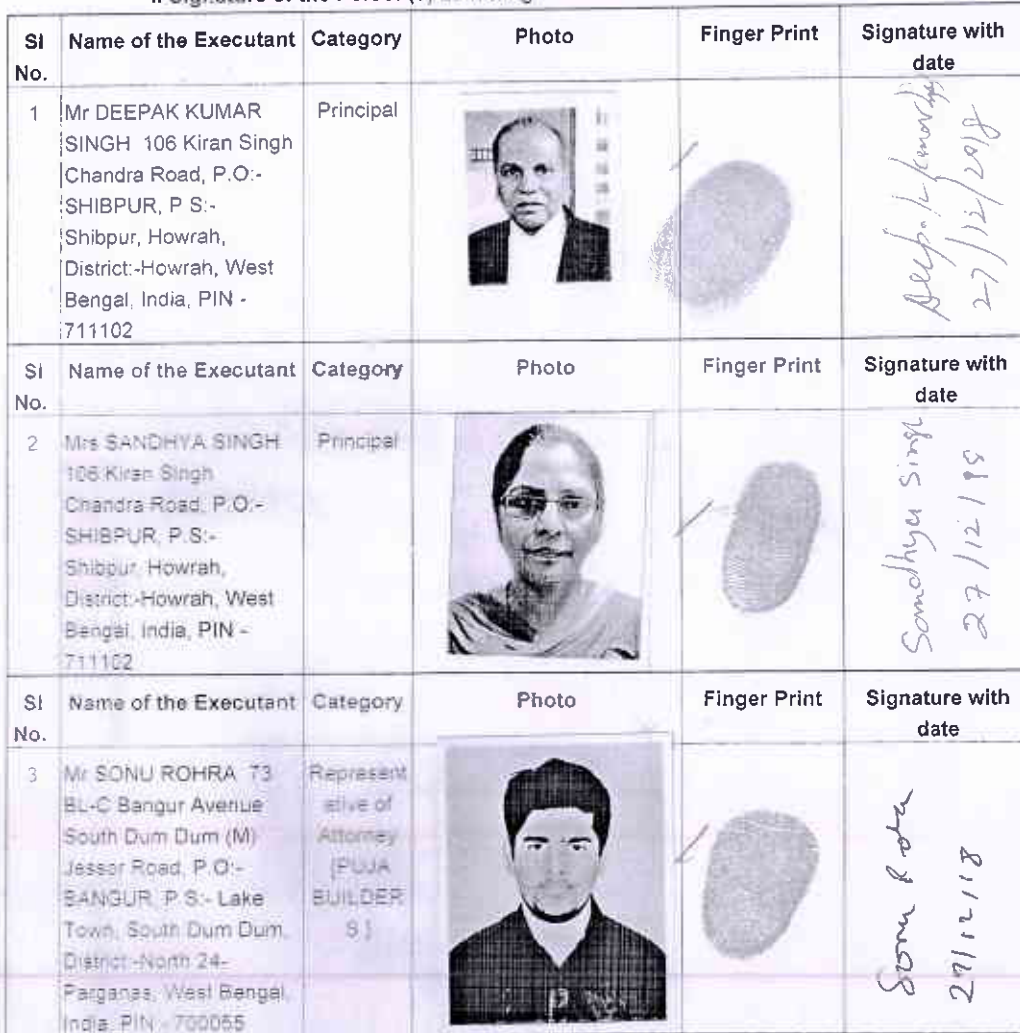 II Signature of the Person(s)
Sl No.
Name of the Executant
Category
Photo
Finger Print
Signature with date
1
Mr DEEPAK KUMAR
SINGH 106 Kiran Singh
Chandra Road, P.O:-
SHIBPUR, P S:-
Shibpur, Howrah,
District:-Howrah, West
Bengal, India, PIN -
711102
Principal
27/12/2018
Sl No.
Name of the Executant
Category
Photo
Finger Print
Signature with date
2
Mrs SANDHYA SINGH
106 Kiran Singh
Chandra Road, P.O:-
SHIBPUR, P.S:-
Shibpur, Howrah,
District:-Howrah, West
Bengal, India, PIN -
711102
Principal
Sandhya Singh
27/12/18
Sl No.
Name of the Executant
Category
Photo
Finger Print
Signature with date
3
Mr SONU ROHRA 73
BL-C Bangur Avenue
South Dum Dum (M)
Jessor Road, P.O:-
BANGUR, P.S:- Lake
Town, South Dum Dum,
District:-North 24-
Parganas, West Bengal,
India, PIN - 700055
Represent
ative of
Attorney
[PUJA
BUILDER
S ]
Sonu
27/12/18